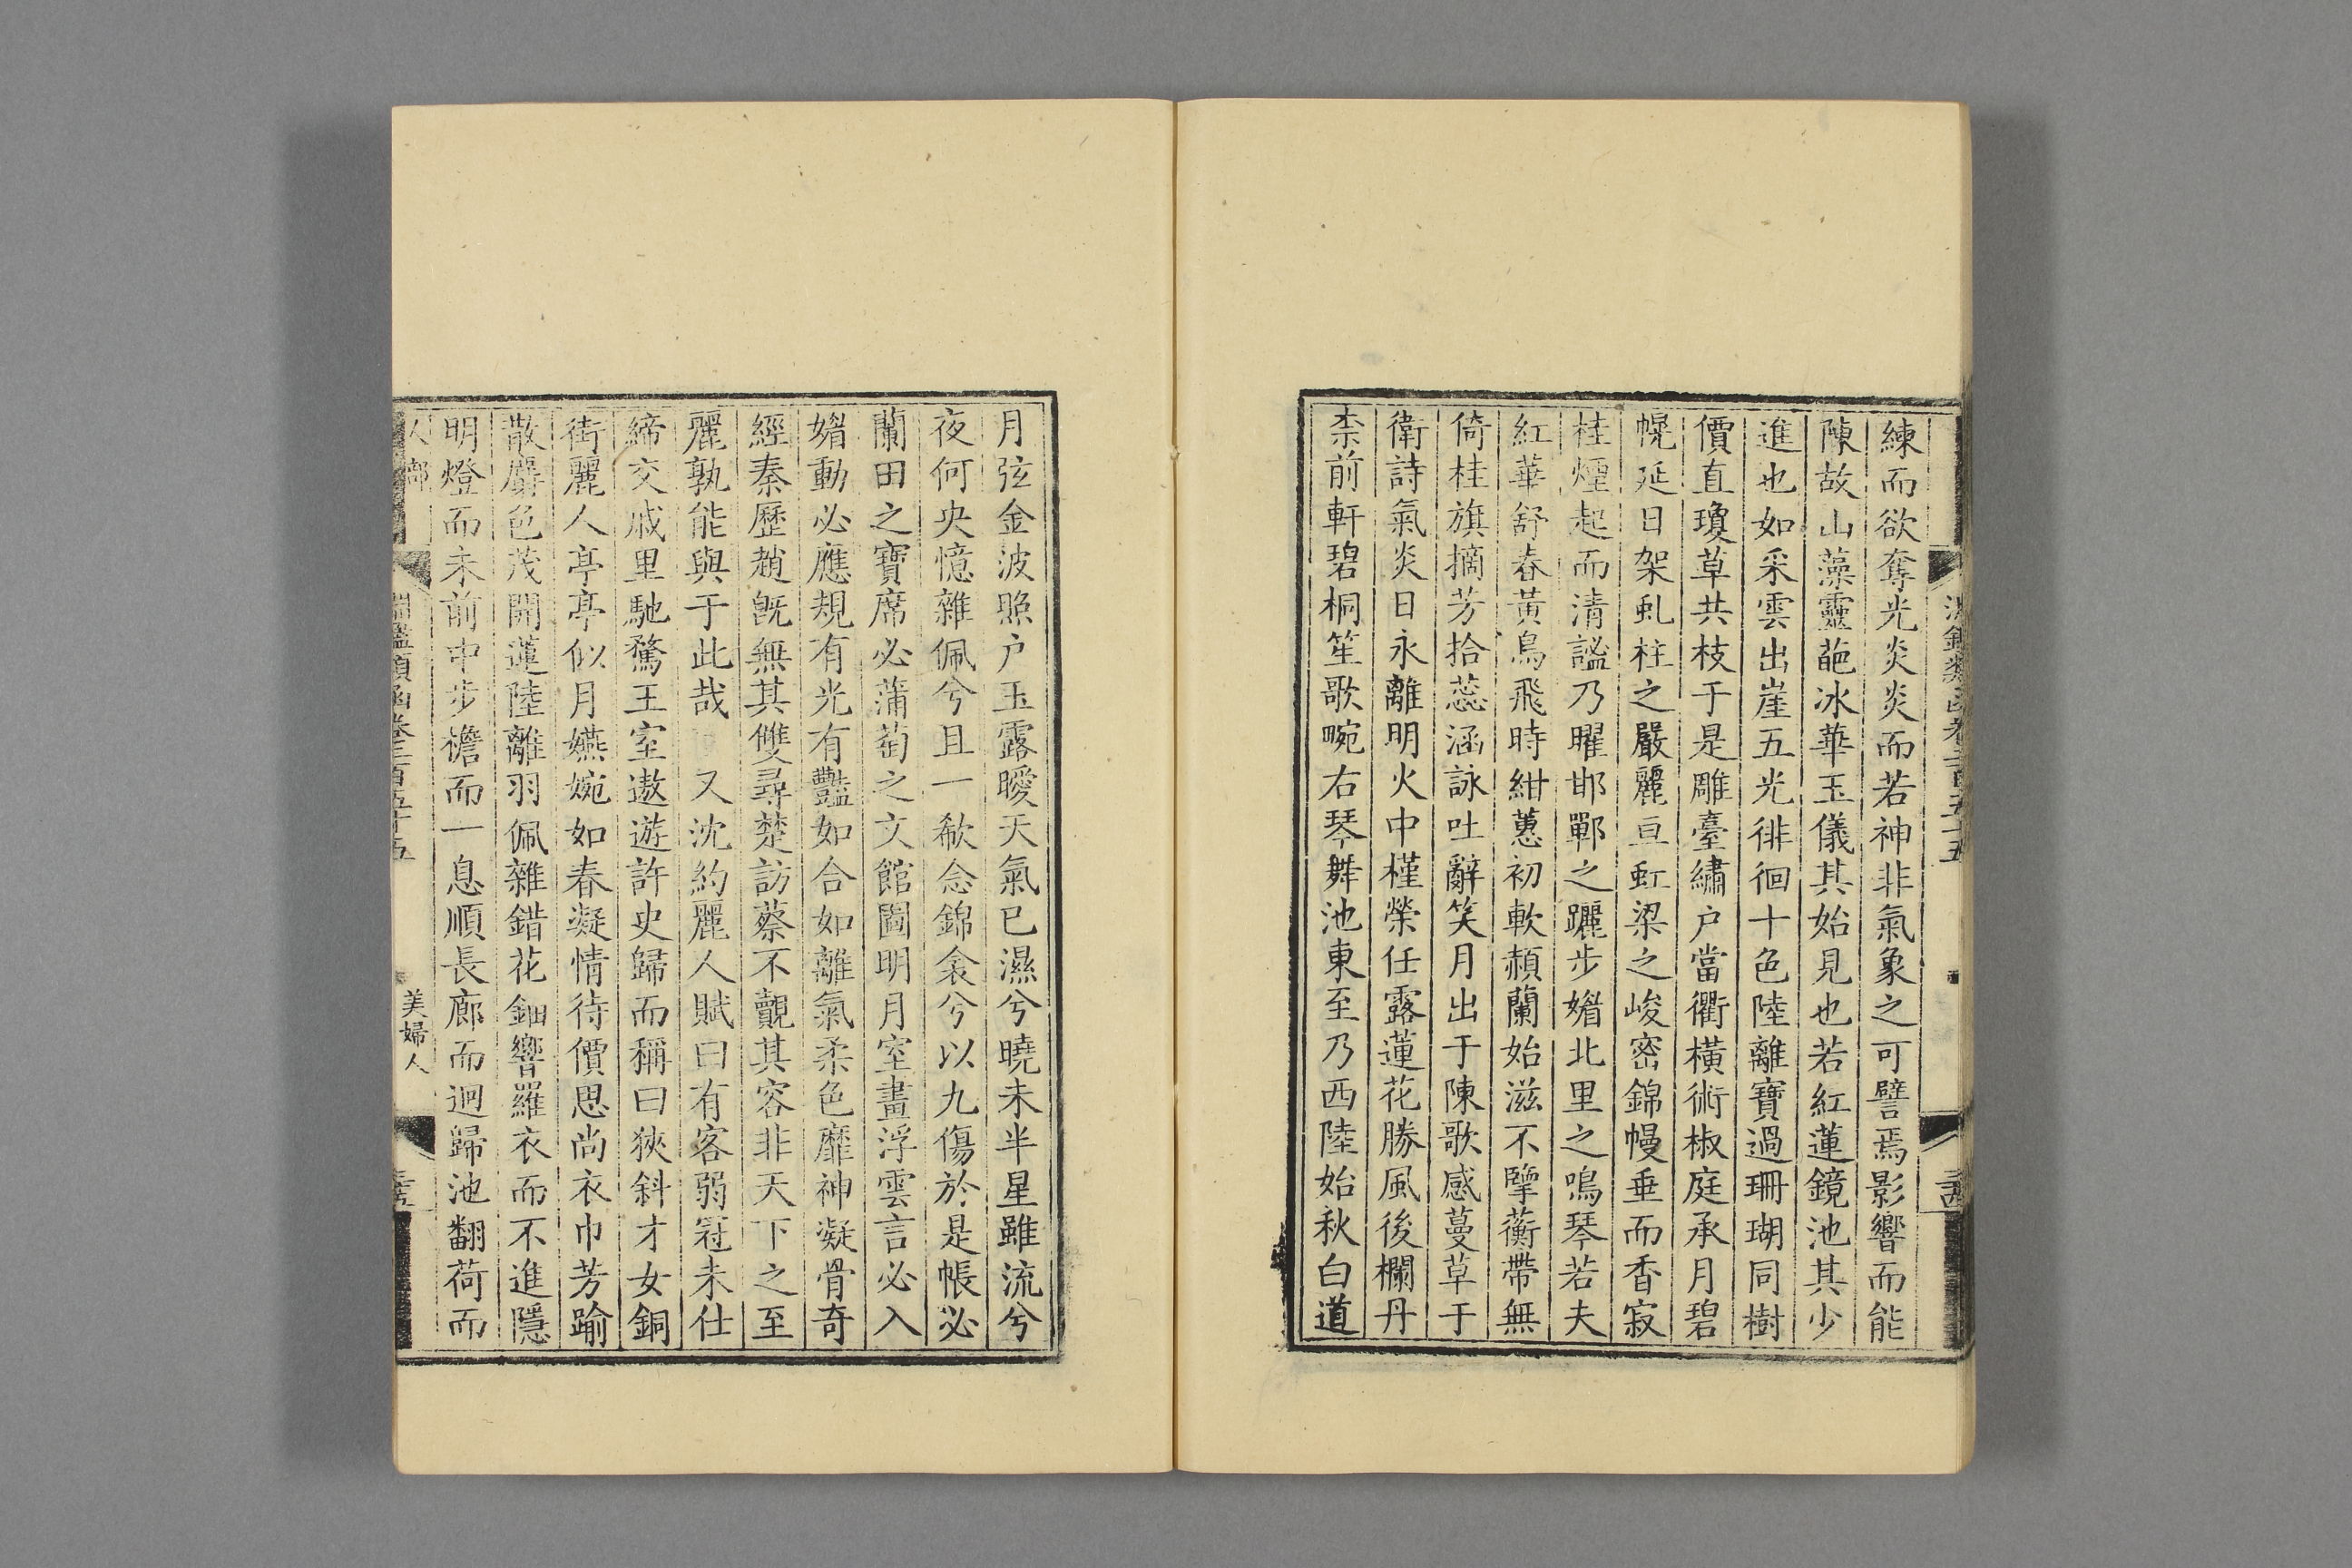 練而欲奪光炎炎而若神非氣象之可譬焉影響而能
陳故山藻靈葩冰華玉儀其始見也若紅蓮鏡池其少
進也如采雲出崖五光徘徊十色陸離寶過珊瑚同樹
價直瓊草共枝于是雕臺繡户當衢橫術椒庭承月碧
幌延日架虬柱之嚴麗亘虹梁之峻密錦幔垂而香寂
桂煙起而清謐乃曜邯鄲之躧步媚北里之鳴琴若夫
紅華舒春黃鳥飛時紺蕙初軟頳蘭始滋不擥蘅帶無
倚桂旗摘芳拾蕊涵詠吐辭笑月出于陳歌感蔓草于
衛詩氣炎日永離明火中槿榮任露蓮花勝風後欄丹
柰前軒碧桐笙歌畹右琴舞池東至乃西陸始秋白道
月弦金波照户玉露曖天氣已濕兮曉未半星雖流兮
夜何央憶雜佩兮且一欷念錦衾兮以九傷於是帳必
蘭田之寶席必蒲萄之文館圖明月室畫浮雲言必入
媚動必應規有光有豔如合如離氣柔色靡神凝骨奇
經秦歷趙旣無其雙尋楚訪蔡不覿其容非天下之至
麗孰能與于此哉 又沈約麗人賦曰有客弱冠未仕
締交戚里馳騖王室遨遊許史歸而稱曰狹斜才女銅
街麗人亭亭似月嬿婉如春凝情待價思尚衣巾芳踰
散麝色茂開蓮陸離羽佩雜錯花鈿響羅衣而不進隱
明燈而未前中步檐而一息順長廊而迴歸池翻荷而
淵鑑類函卷二百五十五
美婦人